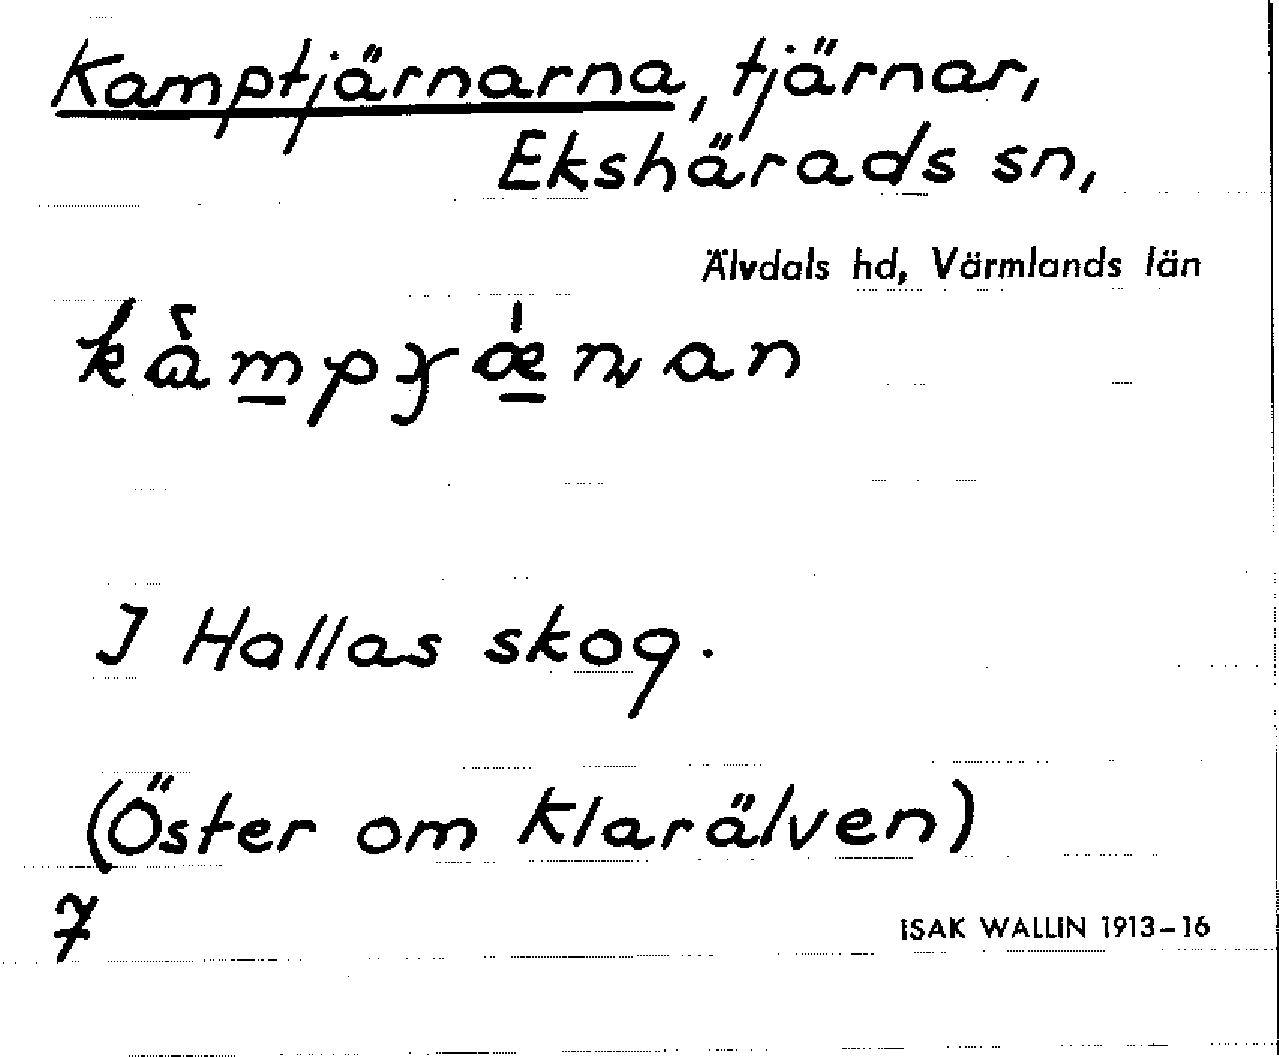 Kamptjärnarna, tjärnar,
Ekshärads sn,
Älvdals hd, Värmlands län
I Hallas skog.
(Öster om Klarälven)
7
ISAK WALLIN 1913–16